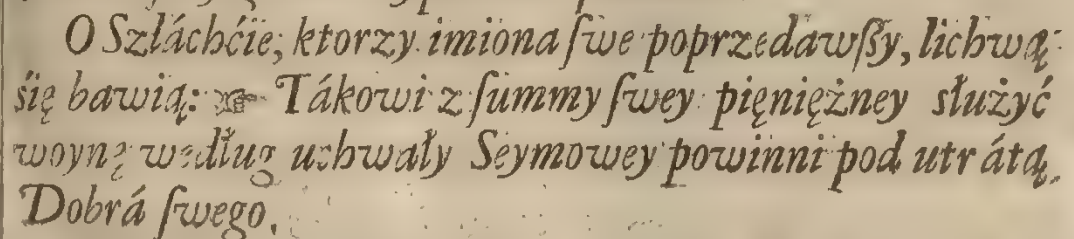 O Szláchćie, ktorzy imiona ſwe poprzedawſſy, lichwą
śię bawią: ☞ Tákowi z ſummy ſwey pięniężney służyć
woynę według uchwały Seymowey powinni pod utrátą
Dobrá ſwego.